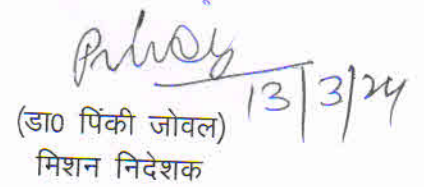 13/3/24
(डा0 पिंकी जोवल)
मिशन निदेशक